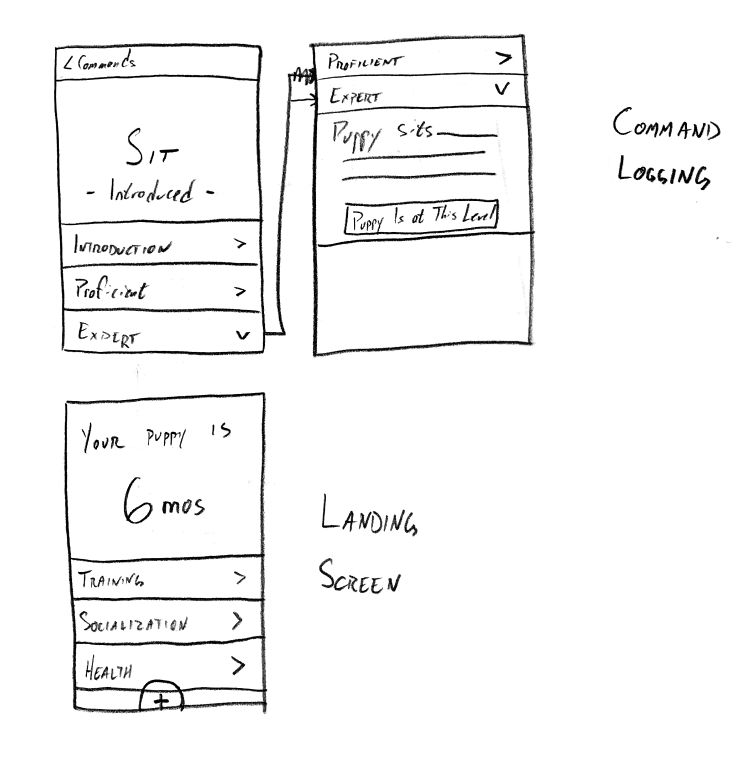 < Commands
Sit
- Introduced -
Introduction >
Proficient >
Expert
Proficient >
Expert
Puppy sits
Puppy Is at This Level
Command
Logging
Your puppy is
6 mos
Training >
Socialization >
Health >
+
Landing
Screen